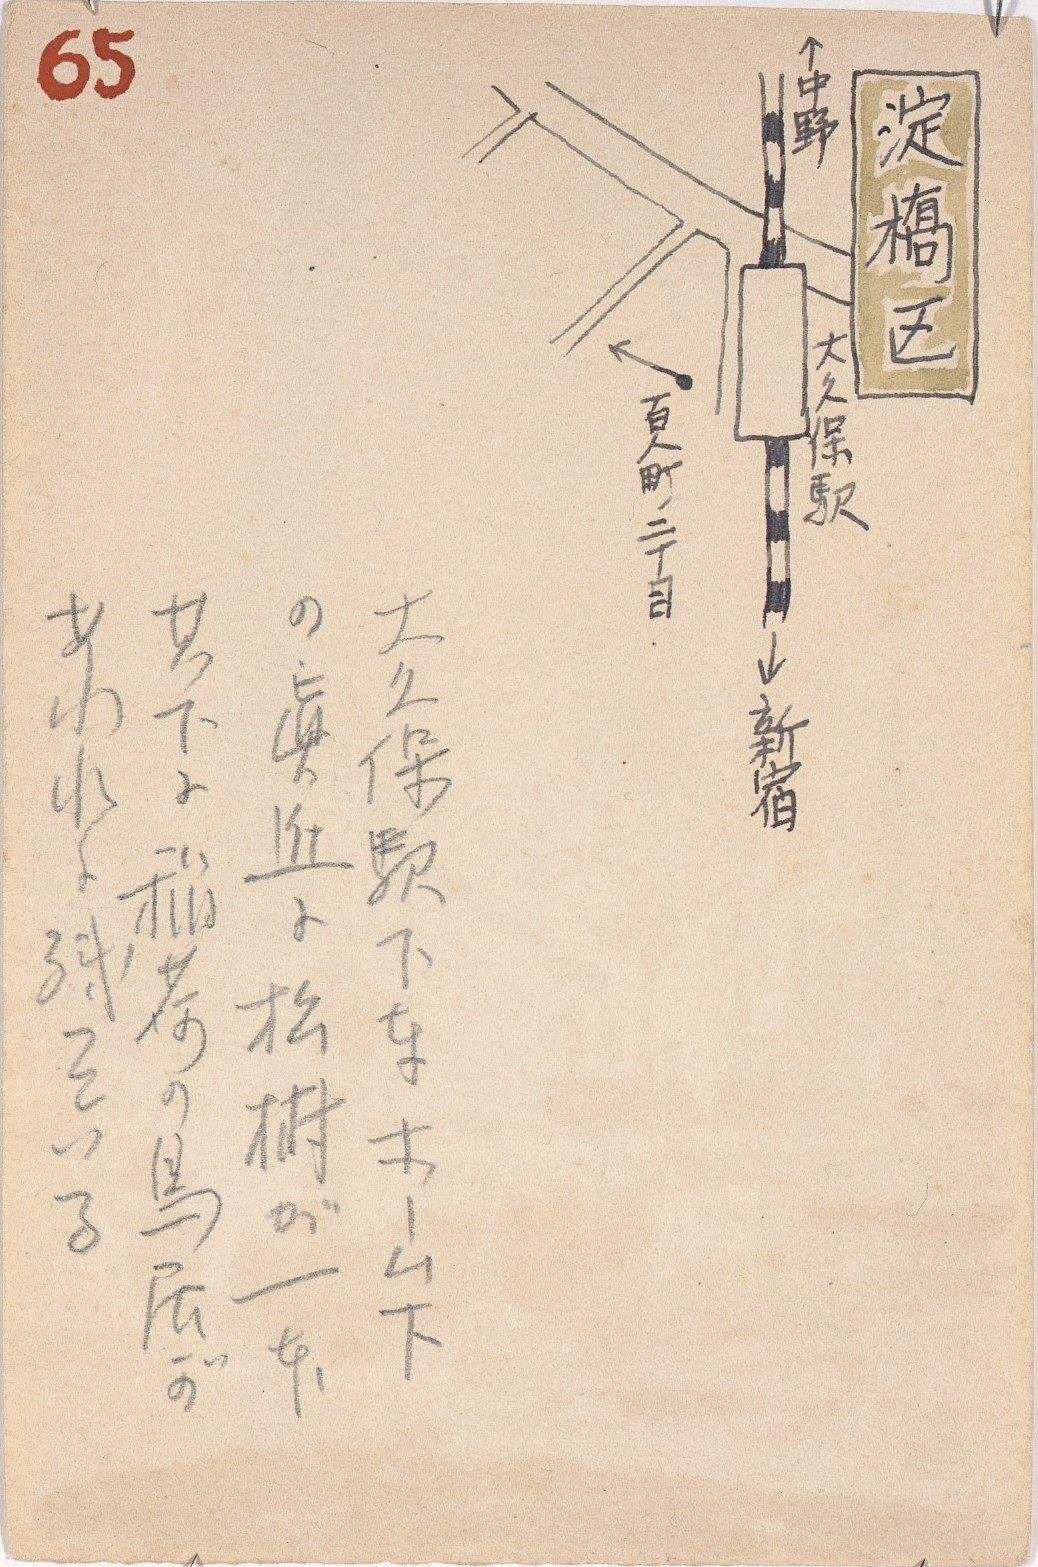 65
淀橋区
↑中野
大久保駅
百人町二丁目
↓新宿
大久保駅下車ホーム下
の真近に松樹が一本
其下に稲荷の鳥居が
あわれに残っている